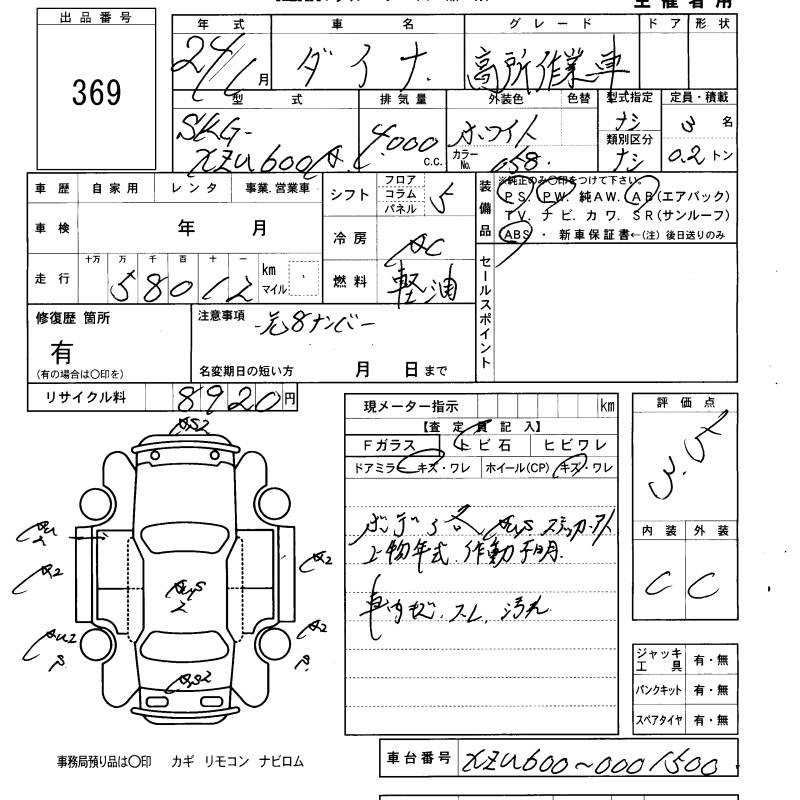 主催者用
出品番号
369
年式 車名 グレード ドア 形状
24/1月 ダイナ 高所作業車
型式 排気量 外装色 色替 型式指定 定員・積載
SKG-
XZU600 4.000 c.c. ホワイト カラーNo. 058 ナシ 3名
類別区分
ナシ 0.2トン
車歴 自家用 レンタ 事業.営業車
車検 年 月
走行 十万 万 千 百 十 一 km マイル
58012
シフト フロア コラム パネル 5
冷房 AC
燃料 軽油
装備品
※純正のみ○印をつけて下さい。
PS. PW. 純AW. AB(エアバック)
TV. ナビ. カワ. SR(サンルーフ)
ABS ・ 新車保証書←(注)後日送りのみ
セールスポイント
修復歴 箇所
有
(有の場合は○印を)
注意事項
元8ナンバー
名変期日の短い方 月 日まで
リサイクル料 8920円
現メーター指示 km
【査定員記入】
Fガラス トビ石 ヒビワレ
ドアミラー キズ・ワレ ホイール(CP) キズ・ワレ
上物年式.作動不明.
スレ. 汚れ
評価点
3.5
内装 外装
C C
ジャッキ工具 有・無
パンクキット 有・無
スペアタイヤ 有・無
A2
A2
A2
事務局預り品は○印 カギ リモコン ナビロム
車台番号 XZU600~0001500